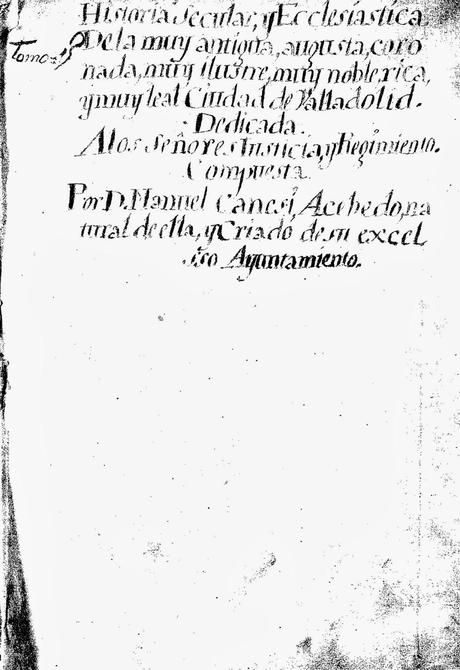 Historia Secular, y Ecclesiastica
De la muy antigua, augusta, coro
nada, muy ilustre, muy noble, rica,
y muy leal Ciudad de Valladolid.
Dedicada.
A los Señores Justicia, y Regimiento.
Compuesta
Por D. Manuel Canesi, Acebedo, na
tural de ella, y Criado de su excel
so Ayuntamiento.
Tomo